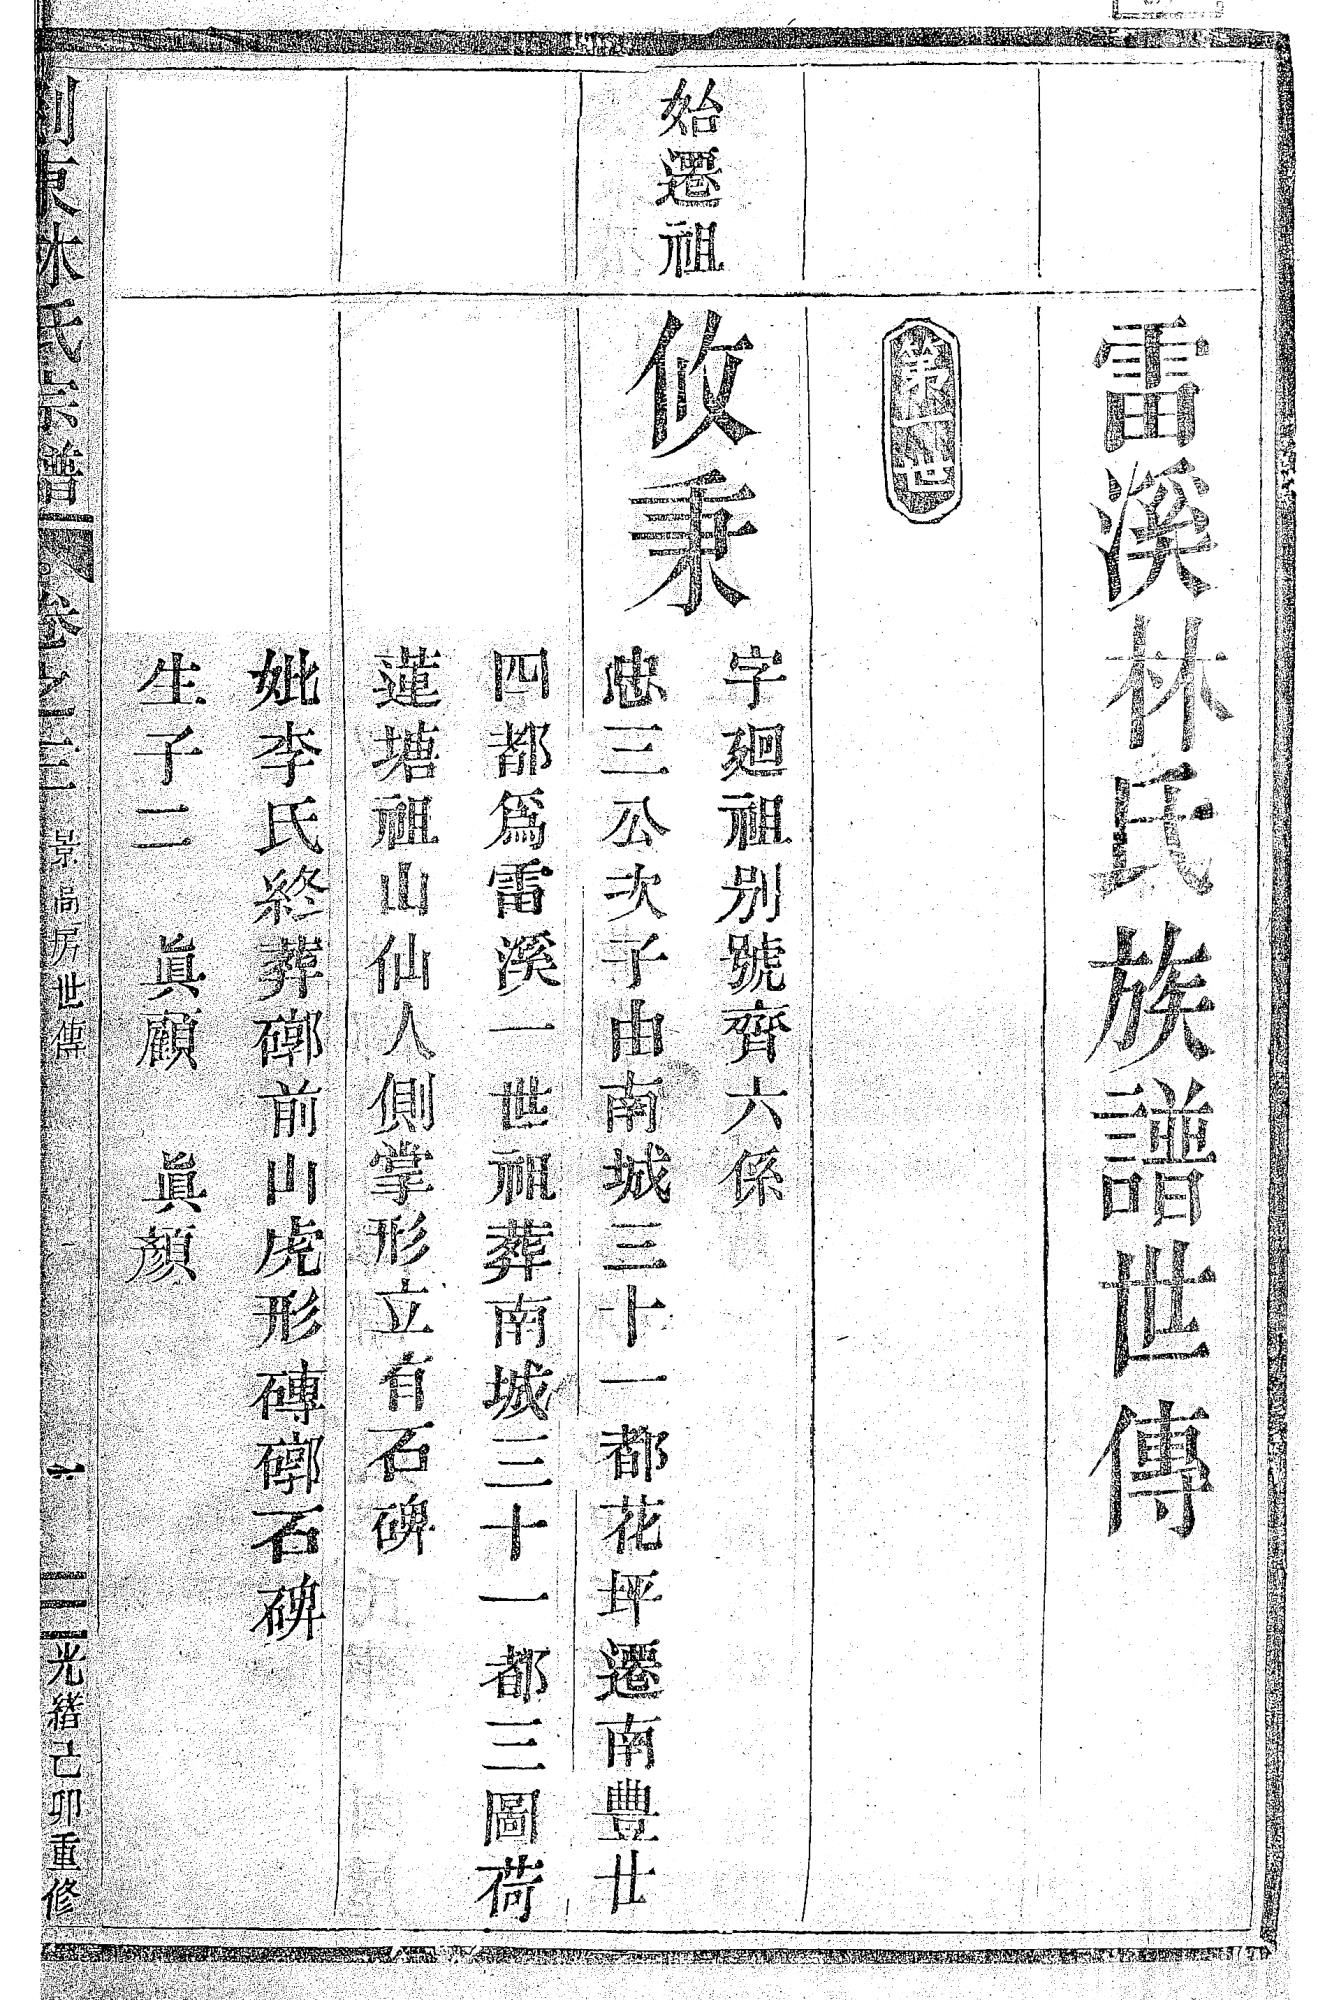 雷溪林氏族譜世傳
第一世
始遷祖
攸秉
字廻祖別號齊六係
忠三公次子由南城三十一都花坪遷南豐廿
四都爲雷溪一世祖葬南城三十一都三圖荷
蓮塘祖山仙人側掌形立有石碑
妣李氏終葬𥕖前山虎形磚𥕖石碑
生子二 眞顧 眞顏
東林氏宗譜
卷之三
景高房世傳
一
光緒己卯重修